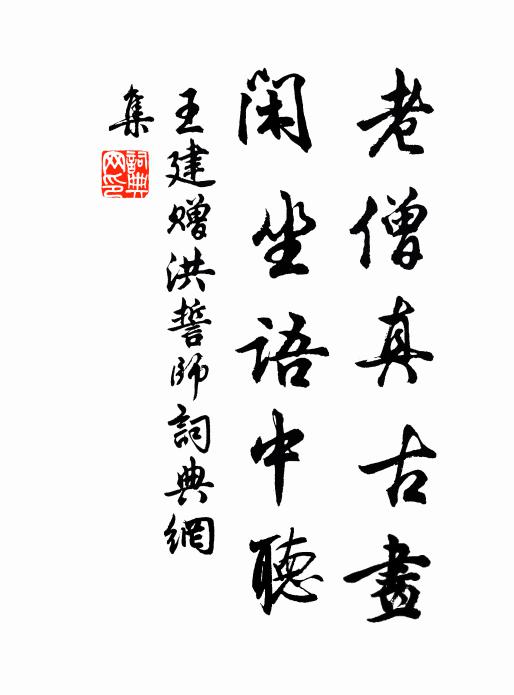 老僧真古畫
閑坐語中聽
王建贈洪誓師詞典網
集
詞典网印